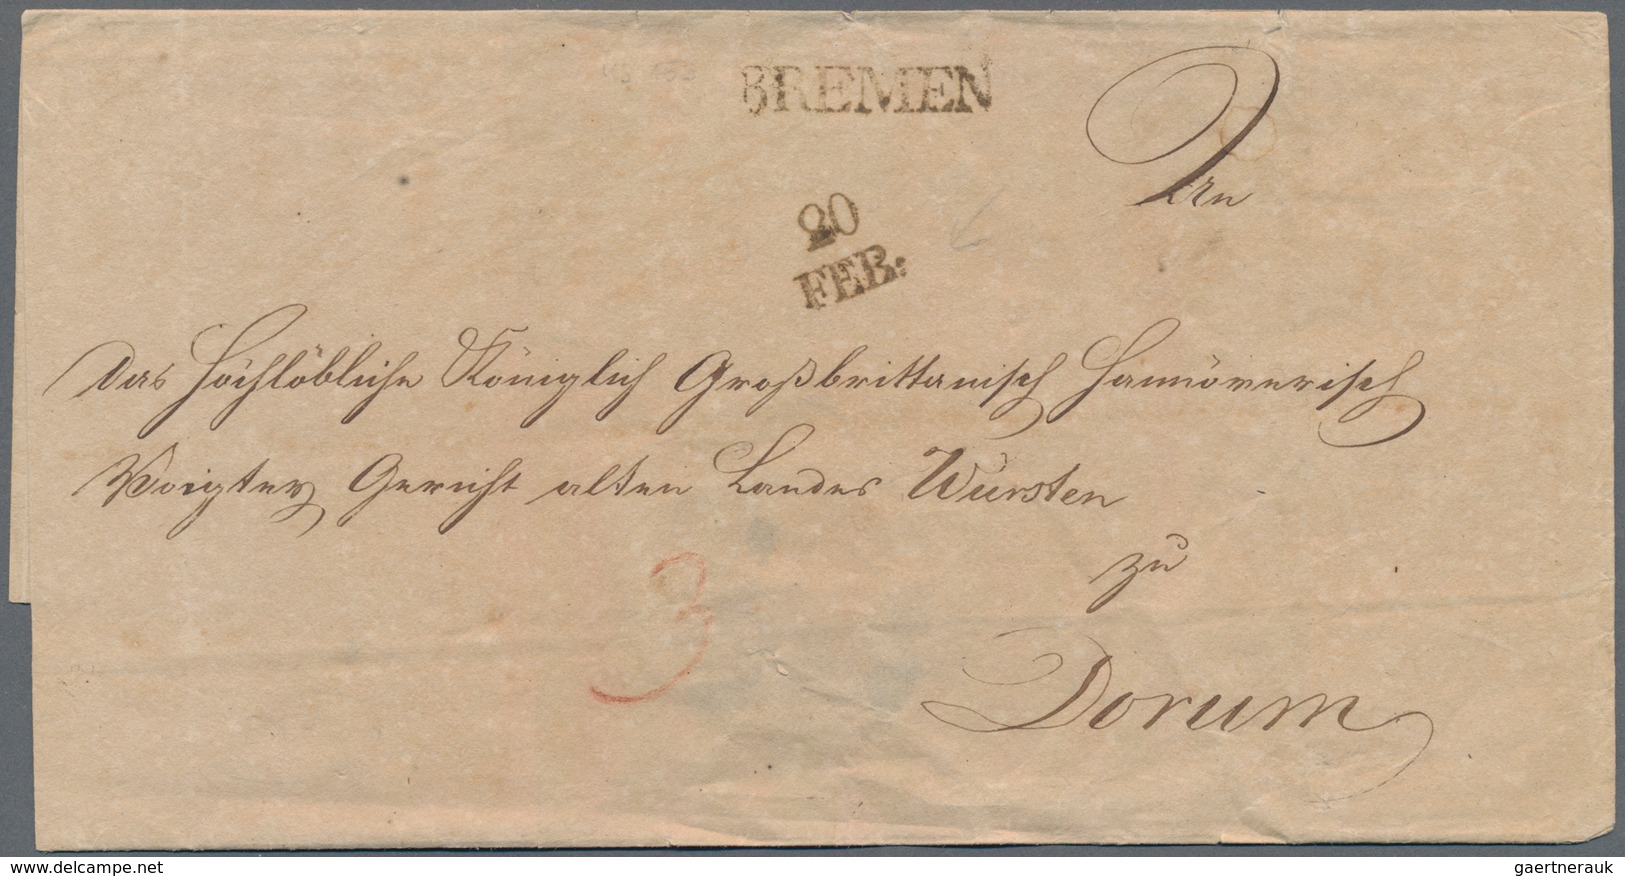 BREMEN
An
20
FEB:
Das Hochlöbliche Königlich Großbrittanisch Hannöverisch
Voigtey Gericht alten Landes Wursten
3
zu
Dorum
www.delcampe.net
gaertnerauk